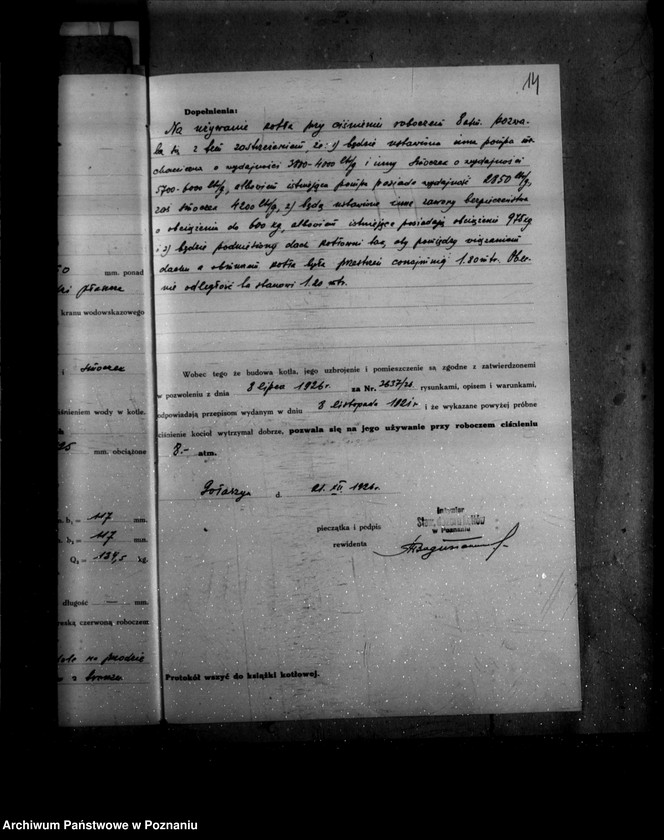 14
Dopełnienia:
Na używanie kotła przy ciśnieniu roboczem 8 atm. pozwa-
la się z tem zastrzeżeniem, że: 1) będzie ustawiona inna pompa me-
chaniczna o wydajności 3800-4000 lt/g i inny smoczek o wydajności
5700-6000 lt/g, albowiem istniejąca pompa posiada wydajność 2850 lt/g,
zaś smoczek 4200 lt/g, 2) będą ustawione inne zawory bezpieczeństwa
o obciążeniu do 600 kg, albowiem istniejące posiadają obciążenie 975 kg
i 3) będzie podniesiony dach kotłowni tak, aby pomiędzy wiązaniem
dachu a obmurzem kotła była przestrzeń conajmniej 1.80 mtr. Obec-
nie odległość ta stanowi 1.20 mtr.
mm. ponad
kranu wodowskazowego
i smoczek
ciśnieniem wody w kotle.
mm. obciążone
b₁ = 117 mm.
b₂ = 117 mm.
Q₂ = 134,5 kg.
długość — mm.
kreską czerwoną roboczem
na przodzie
z boczna
Wobec tego że budowa kotła, jego uzbrojenie i pomieszczenie są zgodne z zatwierdzonemi
w pozwoleniu z dnia 8 lipca 1926 r. za Nr. 3637/26 rysunkami, opisem i warunkami,
odpowiadają przepisom wydanym w dniu 8 listopada 1921 r i że wykazane powyżej próbne
ciśnienie kocioł wytrzymał dobrze, pozwala się na jego używanie przy roboczem ciśnieniu
8.- atm.
d. 21. XII. 1926 r.
pieczątka i podpis
rewidenta
Inżynier
Stow. Dozoru Kotłów
w Poznaniu
Protokół wszyć do książki kotłowej.
Archiwum Państwowe w Poznaniu